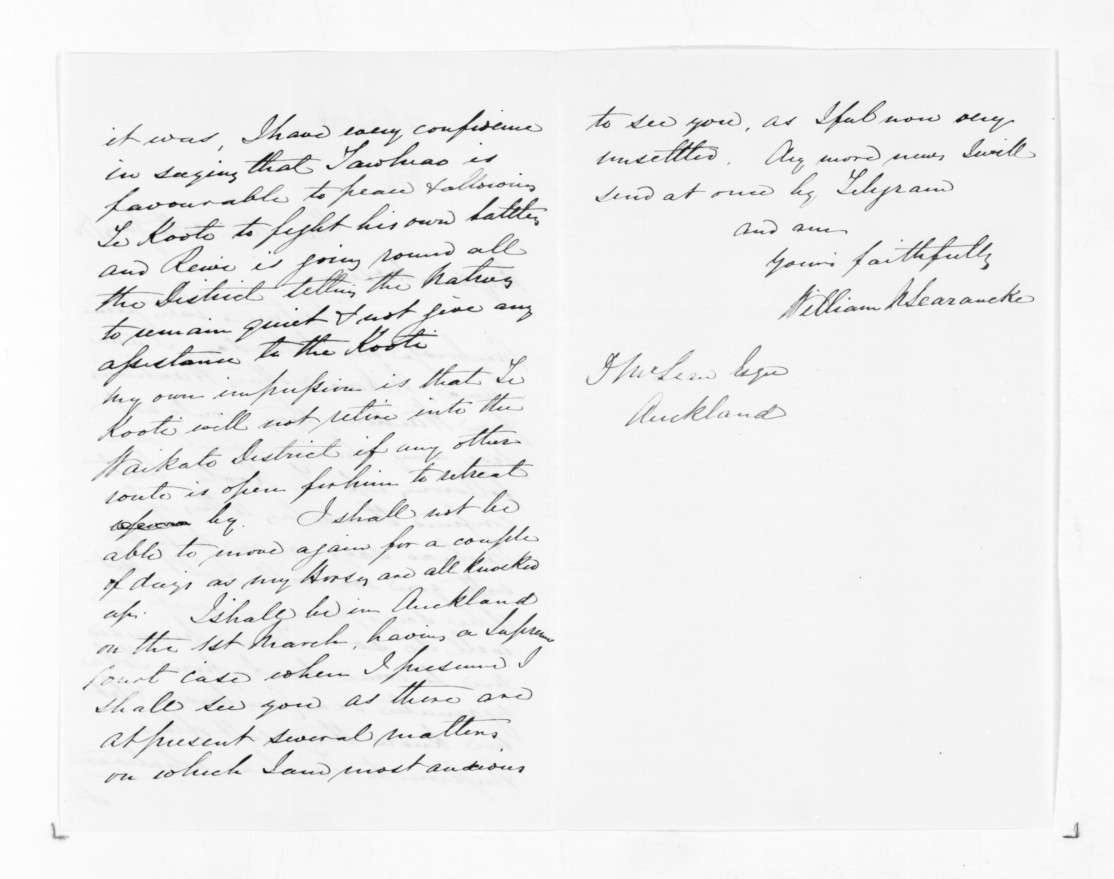 it was, I have every confidence
in saying that Tawhiao is
favourable to peace & allowing
Te Kooti to fight his own battles
and Rewi is going round all
the District telling the Natives
to remain quiet & not give any
assistance to the Kooti
my own impression is that Te
Kooti will not retire into the
Waikato District if any other
route is open for him to retreat
by. I shall not be
able to move again for a couple
of days as my Horses are all knocked
up. I shall be in Auckland
on the 1st March, having a Supreme
Court case when I presume I
shall see you as there are
at present several matters
on which I am most anxious
to see you, as I feel now very
unsettled. Any more news I will
send at once by Telegram
and am
Yours faithfully
William N Searancke
D McLean Esqre
Auckland